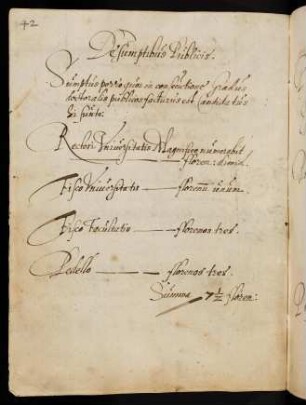 42
De Sumptibus Publicis.
Sumptus porro quos in consecutione Gradus
doctoralis publicos facturus est Candidatus
hi sunt:
Rectori Universitatis Magnifico numerabit
floren: dimid.
Fisco Universitatis — florenum unum.
Fisco Facultatis — florenos tres.
Pedello — florenos tres.
Summa 7 1/2 floren: